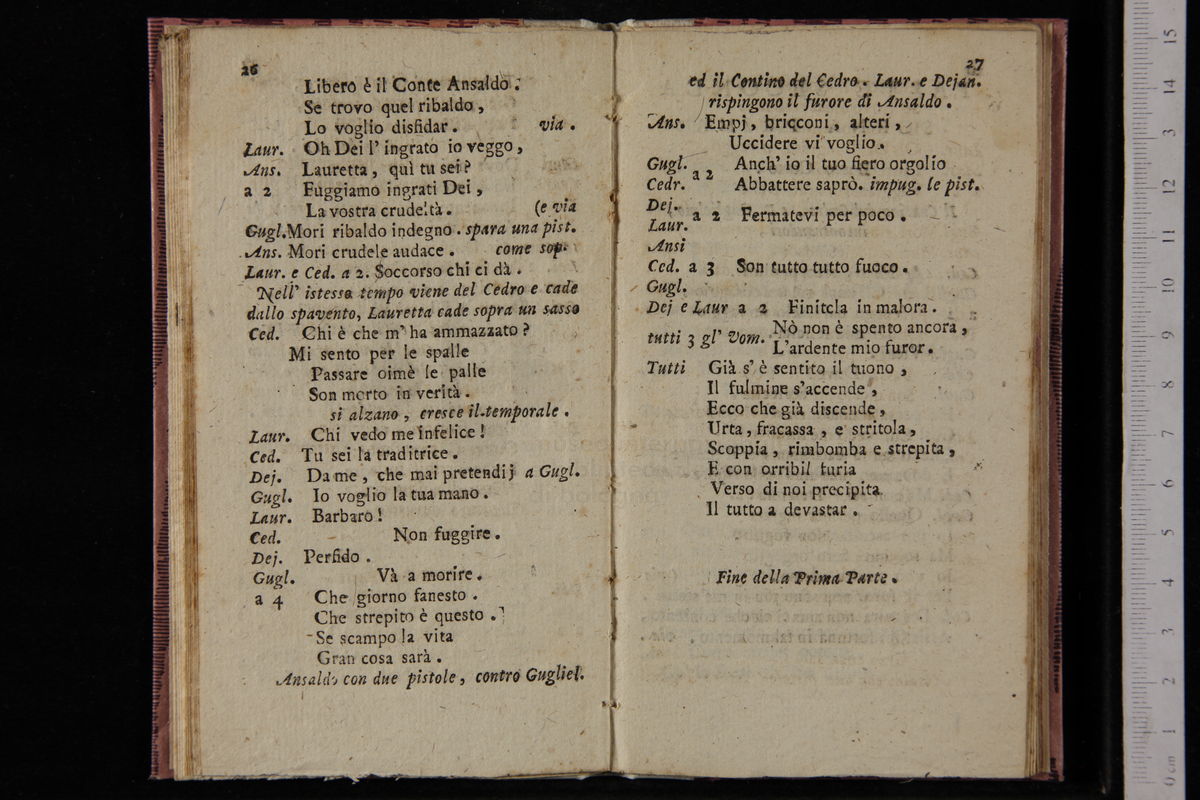 26
Libero è il Conte Ansaldo.
Se trovo quel ribaldo,
Lo voglio disfidar. via.
Laur. Oh Dei l' ingrato io veggo,
Ans. Lauretta, quì tu sei?
a 2 Fuggiamo ingrati Dei,
La vostra crudeltà. (e via
Gugl. Mori ribaldo indegno. spara una pist.
Ans. Mori crudele audace. come sop.
Laur. e Ced. a 2. Soccorso chi ci dà.
Nell' istessa tempo viene del Cedro e cade
dallo spavento, Lauretta cade sopra un sasso
Ced. Chi è che m' ha ammazzato?
Mi sento per le spalle
Passare oimè le palle
Son morto in verità.
si alzano, cresce il temporale.
Laur. Chi vedo me infelice!
Ced. Tu sei la traditrice.
Dej. Da me, che mai pretendij a Gugl.
Gugl. Io voglio la tua mano.
Laur. Barbaro!
Ced. Non fuggire.
Dej. Perfido.
Gugl. Và a morire.
a 4 Che giorno fanesto.
Che strepito è questo.
Se scampo la vita
Gran cosa sarà.
Ansaldo con due pistole, contro Gugliel.
27
ed il Contino del Cedro. Laur. e Dejan.
rispingono il furore di Ansaldo.
Ans. Empj, bricconi, alteri,
Uccidere vi voglio.
Gugl. Anch' io il tuo fiero orgolio
a 2
Cedr. Abbattere saprò. impug. le pist.
Dej.
a 2 Fermatevi per poco.
Laur.
Ansi
Ced. a 3 Son tutto tutto fuoco.
Gugl.
Dej e Laur a 2 Finitela in malora.
tutti 3 gl' Vom. Nò non è spento ancora,
L'ardente mio furor.
Tutti Già s' è sentito il tuono,
Il fulmine s'accende,
Ecco che già discende,
Urta, fracassa, e stritola,
Scoppia, rimbomba e strepita,
E con orribil furia
Verso di noi precipita
Il tutto a devastar.
Fine della Prima Parte.
15
14
13
12
11
10
9
8
7
6
5
4
3
2
1
0 cm